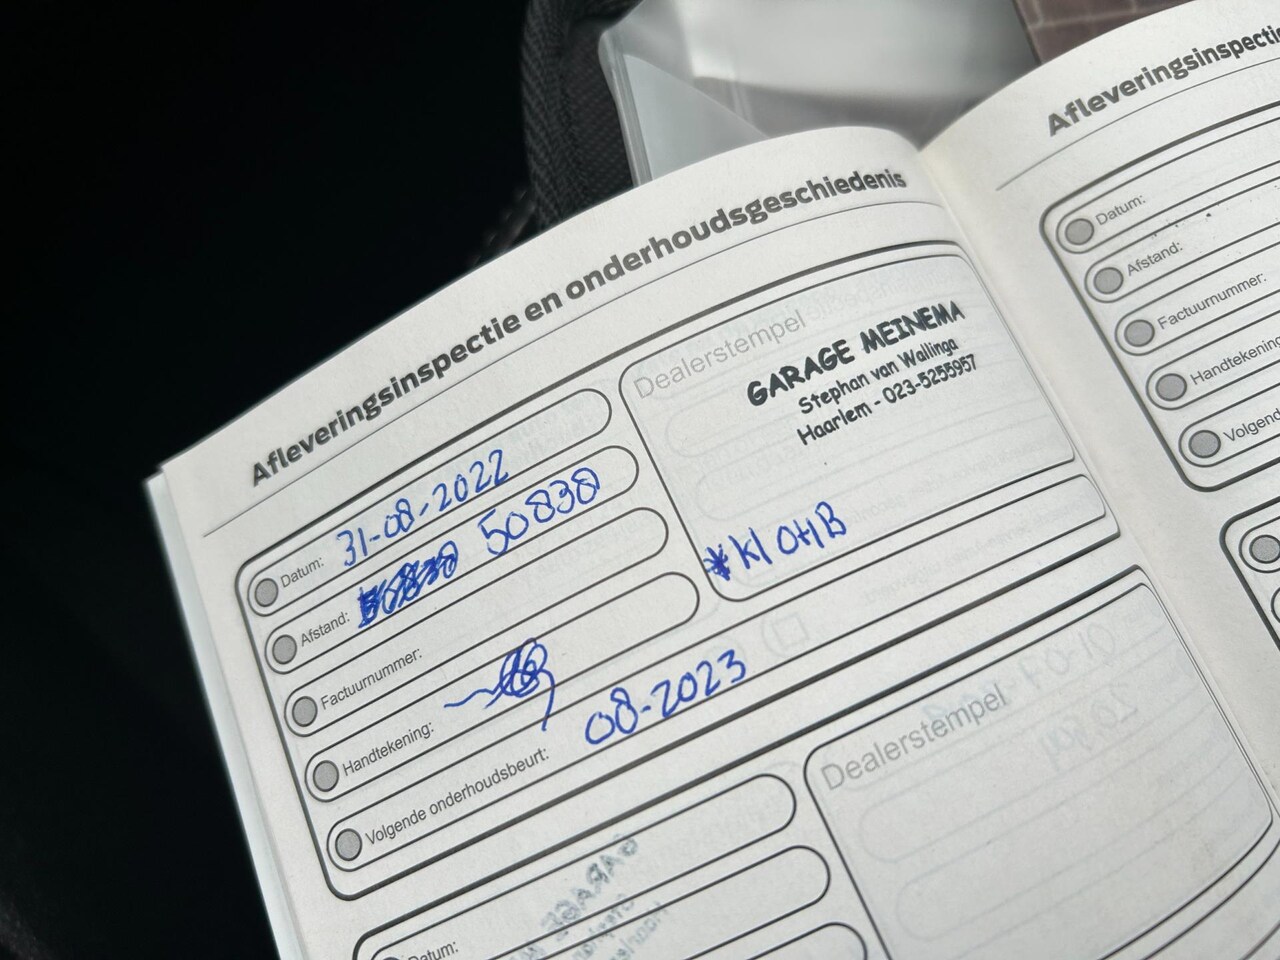 Afleveringsinspectie en onderhoudsgeschiedenis
Datum: 31-08-2022
Afstand: 50838
Factuurnummer:
Handtekening:
Volgende onderhoudsbeurt: 08-2023
Dealerstempel
GARAGE MEINEMA
Stephan van Wallinga
Haarlem - 023-5255957
*Kl OHB
Datum:
Dealerstempel
Afleveringsinspectie
Datum:
Afstand:
Factuurnummer:
Handtekening
Volgend